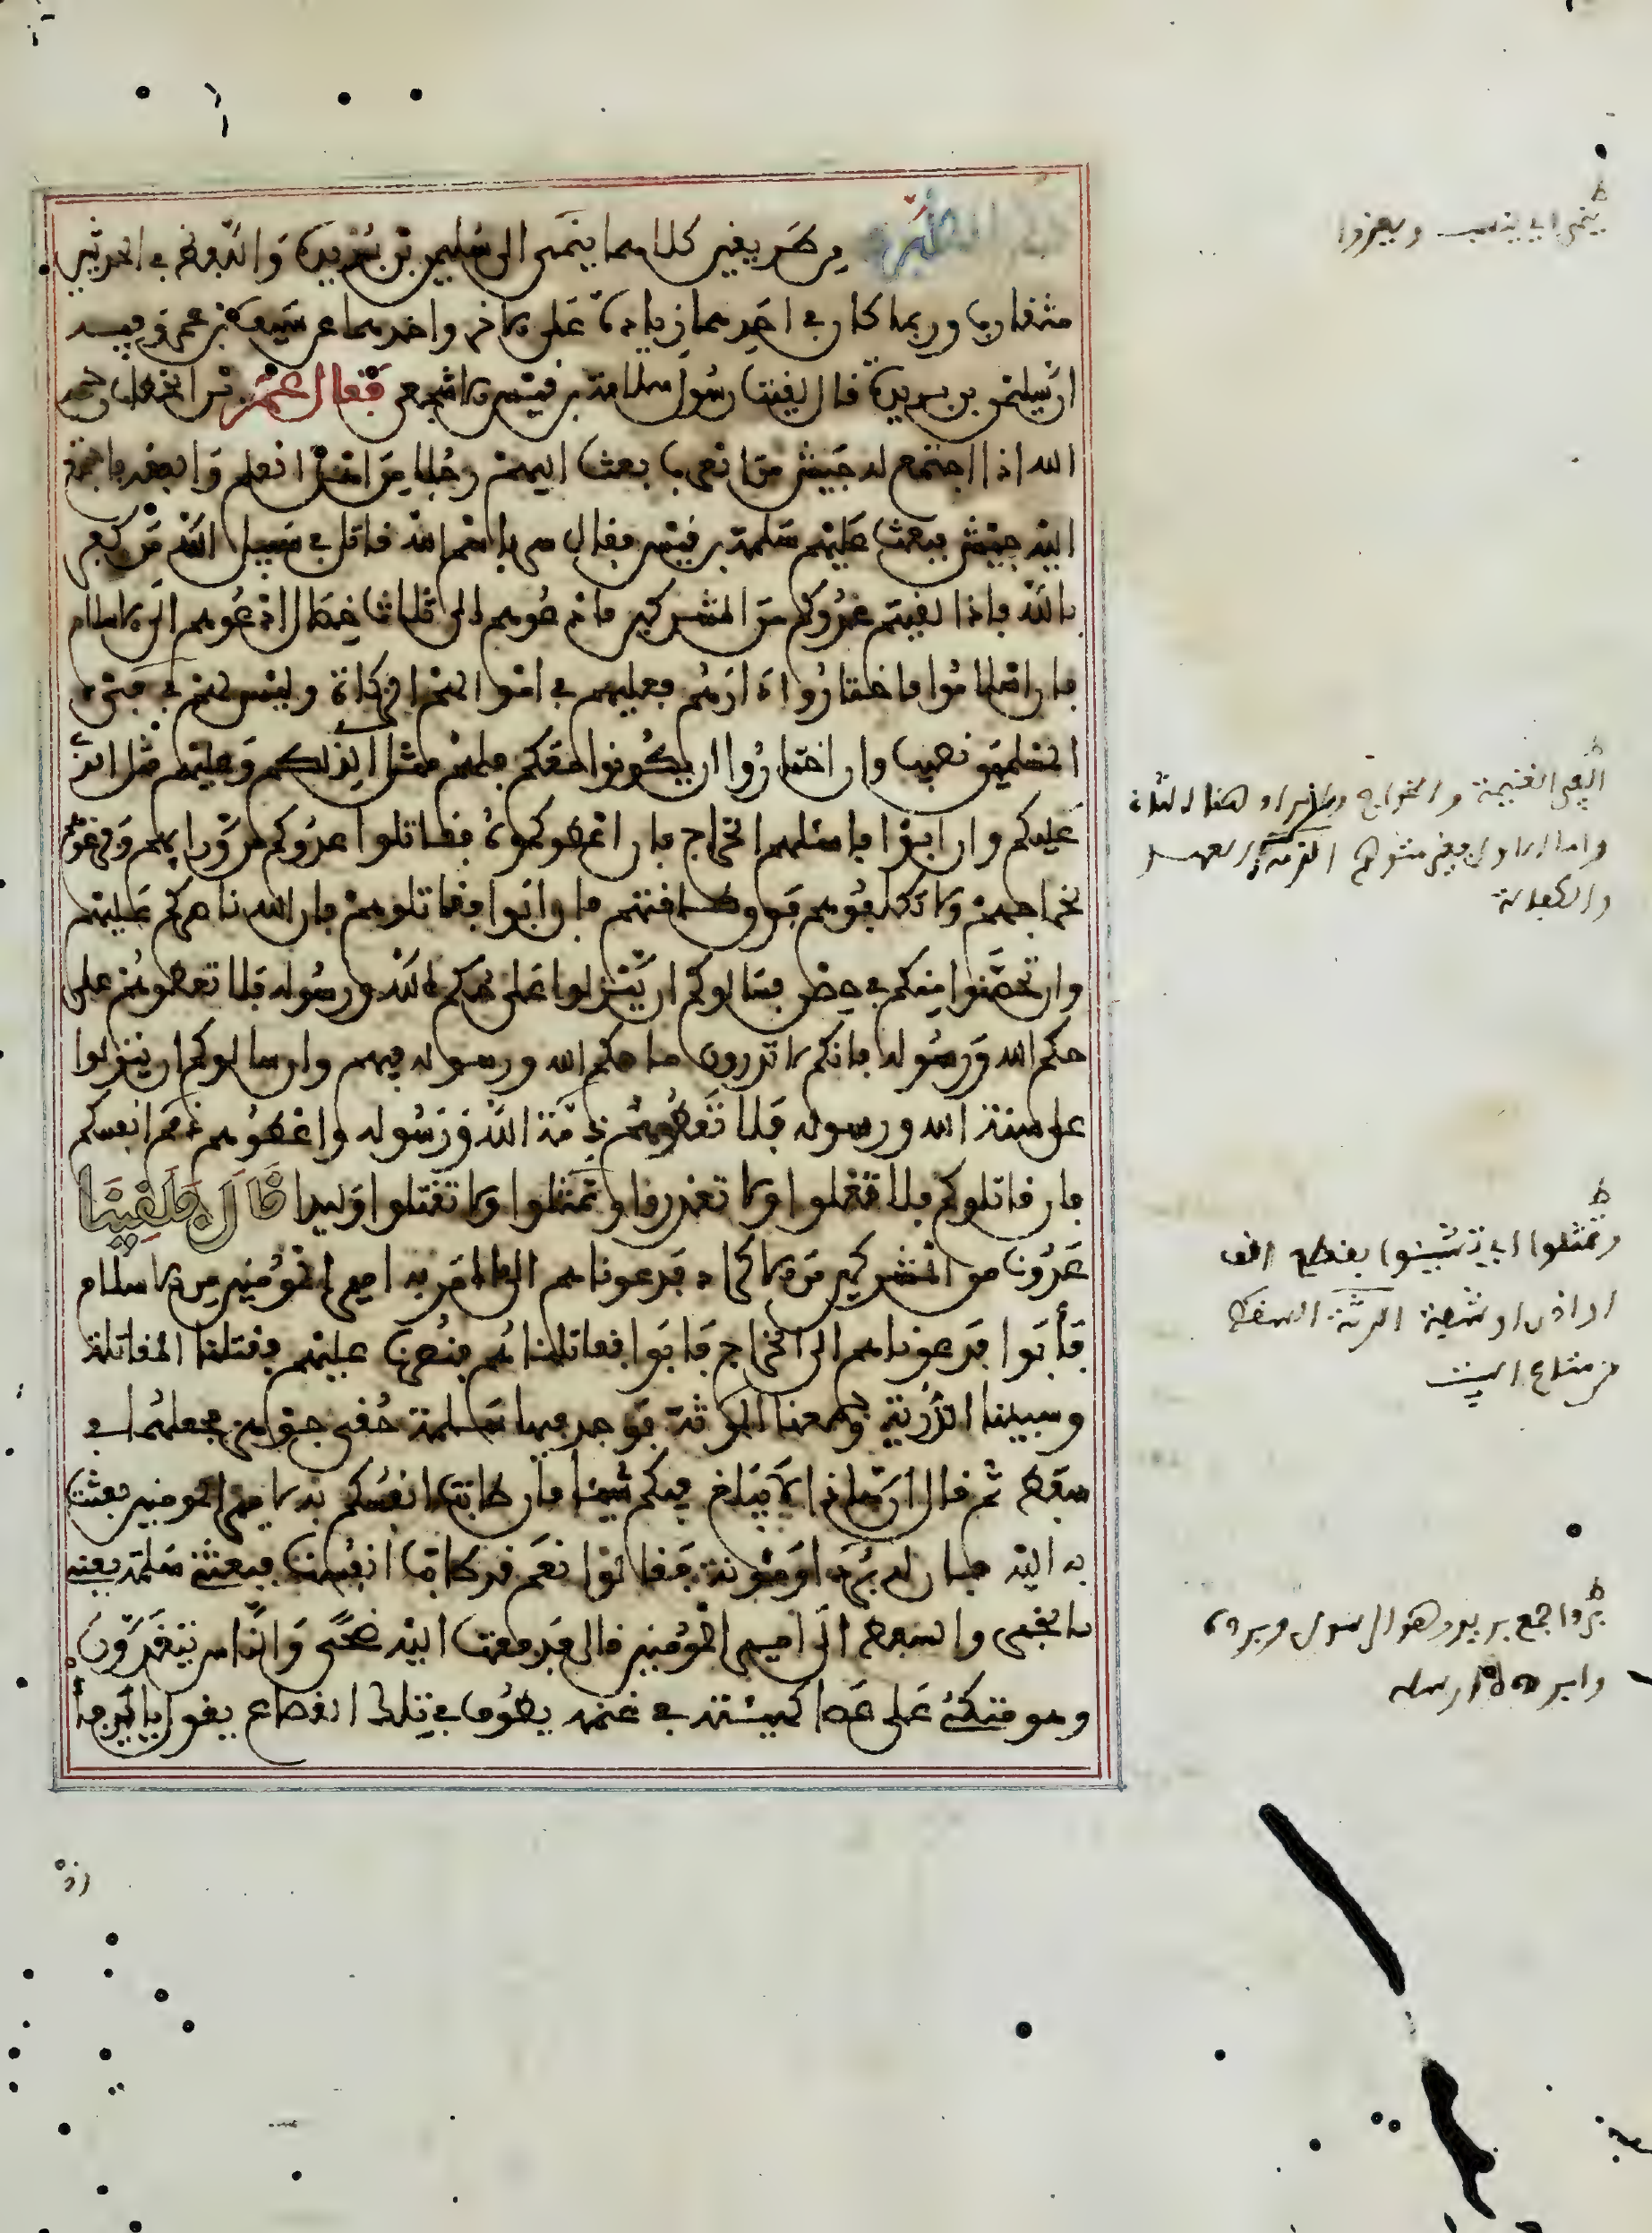 من طريقين كلاهما ينمى الى سليمن بن بريدة واللفظ في الحديثين
متقارب وربما كان في احدهما زيادة على الاخر واحدهما عن شيبة بن عمر
ان سليمن بن بريدة قال لقينا رسول سلمة بن قيس الاشجعي فقال عمر بن الخطاب رحمه
الله اذا اجتمع له جيش من العرب بعث اليهم رجلا من اهل العلم والفقه فاجتمع
اليه جيش فبعث عليهم سلمة بن قيس فقال سر باسم الله قاتل في سبيل الله من كفر
بالله فاذا لقيتم عدوكم من المشركين فادعوهم الى ثلاث خصال ادعوهم الى الاسلام
فان اسلموا فاختاروا دارهم فعليهم في اموالهم الزكاة وليس لهم في فيء
المسلمين نصيب وان اختاروا ان يكونوا معكم فلهم مثل الذي لكم وعليهم مثل الذي
عليكم وان ابوا فاسئلهم الخراج فان اعطوكموه فقاتلوا عدوكم من ورايهم وفرغوهم
لخراجهم ولا تكلفوهم فوق طاقتهم فان ابوا فقاتلوهم فان الله ناصركم عليهم
وان تحصنوا منكم في حصن فسالوكم ان ينزلوا على حكم الله ورسوله فلا تعطوهم على
حكم الله ورسوله فانكم لا تدرون ما حكم الله ورسوله فيهم وان سالوكم ان ينزلوا
على ذمة الله ورسوله فلا تعطوهم ذمة الله ورسوله واعطوهم ذمم انفسكم
فان قاتلوكم فلا تغلوا ولا تغدروا ولا تمثلوا ولا تقتلوا وليدا قال فلقينا
عدونا من المشركين من الاكراد فدعوناهم الى ما امر به امير المؤمنين من الاسلام
فأبوا فدعوناهم الى الخراج فابوا فقاتلناهم فنصرنا عليهم فقتلنا المقاتلة
وسبينا الذرية وجمعنا الرثة فوجد فيها سلمة حقي جوهر فجعلهما في
سفط ثم قال ان هذا لا يبلغ فيكم شيئا فان طابت انفسكم به لامير المومنين بعثت
به اليه فان له بردا ومئونة فقالوا نعم قد طابت انفسنا فبعثني سلمة يعني
بالخبر والسفط الى امير المؤمنين قال فدفعت اليه ضحى والناس يتغدون
وهو متكئ على عصا كهيئته في غنمه يطوف في تلك القصاع يقول يا يرفأ
ينمى اي ينسب ويعزوا
الفيء الغنيمة والخراج وهو المراد هنا
والكفالة
وتمثلوا اي تشينوا بقطع انف
او اذن او نحوه الرثة السقط
من متاع البيت
بردا جمع بريد وهو الرسول
زد